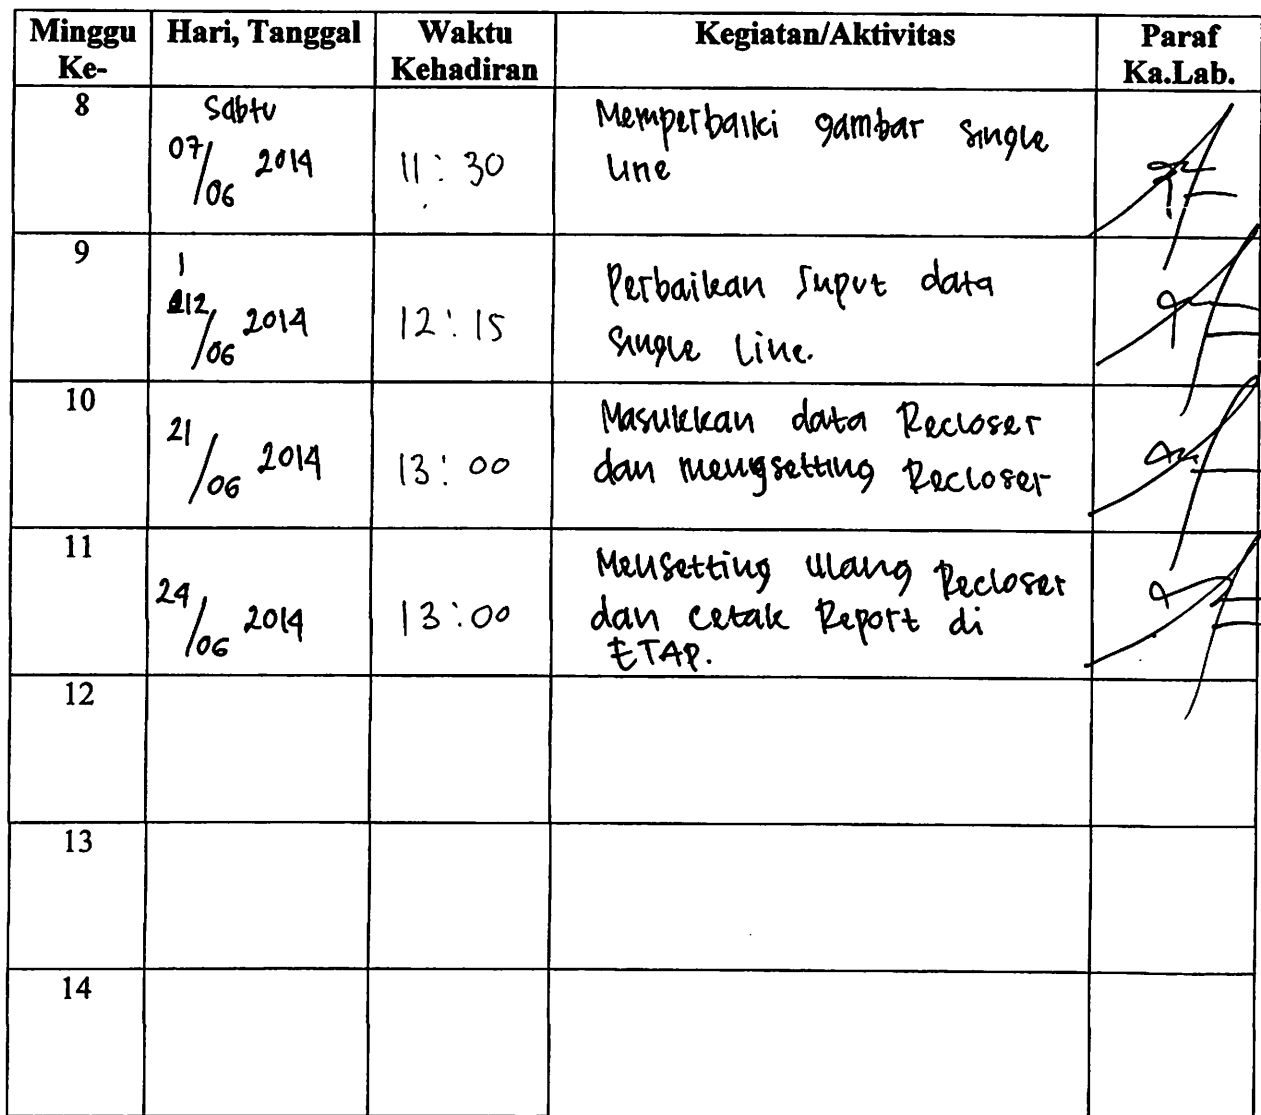 Minggu Ke- Hari, Tanggal Waktu Kehadiran Kegiatan/Aktivitas Paraf Ka.Lab.
8 Sabtu 07/06 2014 11:30 Memperbaiki gambar single
line
9 12/06 2014 12:15 Perbaikan Input data
Single Line.
10 21/06 2014 13:00 Masukkan data Recloser
dan mengsetting Recloser
11 24/06 2014 13:00 Mensetting ulang Recloser
dan cetak Report di
ETAP.
12
13
14